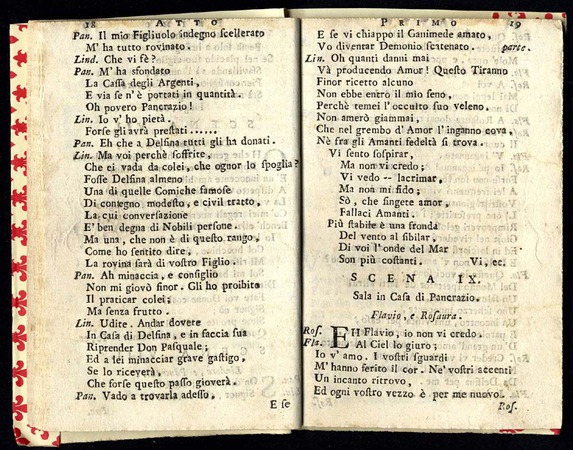 18 ATTO
Pan. Il mio Figliuolo indegno scellerato
M' ha tutto rovinato.
Lind. Che vi fè?
Pan. M' ha sfondato
La Cassa degli Argenti,
E via se n'è portati in quantità.
Oh povero Pancrazio!
Lin. Io v' ho pietà.
Forse gli avrà prestati ......
Pan. Eh che a Delfina tutti gli ha donati.
Lin. Ma voi perchè soffrite,
Che ei vada da colei, che ognor lo spoglia?
Fosse Delfina almeno
Una di quelle Comiche famose
Di contegno modesto, e civil tratto,
La cui conversazione
E' ben degna di Nobili persone.
Ma una, che non è di questo rango,
Come ho sentito dire,
La rovina sarà di vostro Figlio.
Pan. Ah minaccia, e consiglio
Non mi giovò finor. Gli ho proibito
Il praticar colei;
Ma senza frutto.
Lin. Udite. Andar dovete
In Casa di Delfina, e in faccia sua
Riprender Don Pasquale;
Ed a lei minacciar grave gastigo,
Se lo riceverà,
Che forse questo passo gioverà.
Pan. Vado a trovarla adesso,
E se
PRIMO 19
E se vi chiappo il Ganimede amato,
Vo diventar Demonio scatenato. parte.
Lin. Oh quanti danni mai
Và producendo Amor! Questo Tiranno
Finor ricetto alcuno
Non ebbe entro il mio seno,
Perchè temei l'occulto suo veleno.
Non amerò giammai,
Che nel grembo d' Amor l'inganno cova,
Nè fra gli Amanti fedeltà si trova.
Vi sento sospirar,
Ma non vi credo;
Vi vedo -- lacrimar,
Ma non mi fido;
Sò, che fingere amor,
Fallaci Amanti.
Più stabile è una fronda
Del vento al sibilar,
Di voi l'onde del Mar
Son più costanti. Vi, ec.
SCENA IX.
Sala in Casa di Pancrazio.
Flavio, e Rosaura.
Ros. EH Flavio, io non vi credo.
Fla. Al Ciel lo giuro;
Io v' amo. I vostri sguardi
M' hanno ferito il cor. Ne' vostri accenti
Un incanto ritrovo,
Ed ogni vostro vezzo è per me nuovo.
Ros.